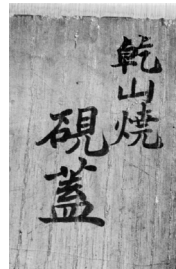 乾山焼
硯蓋